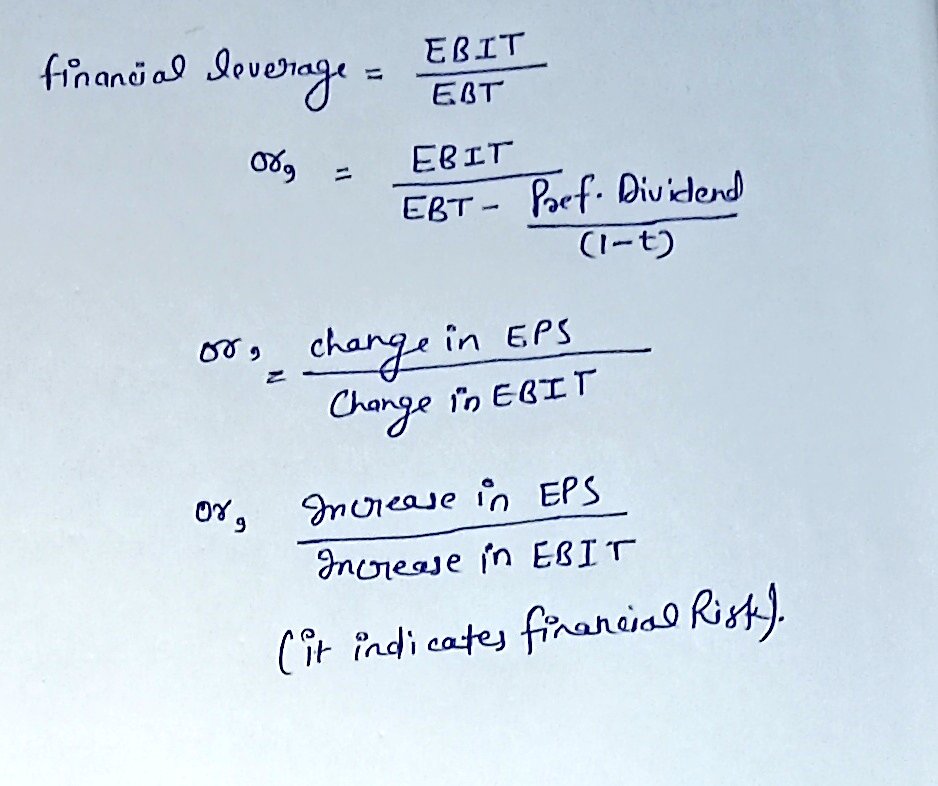 financial leverage = EBIT
EBT
or, = EBIT
EBT - Pref. Dividend
(1-t)
or, = change in EPS
Change in EBIT
or, Increase in EPS
Increase in EBIT
(it indicates financial Risk).